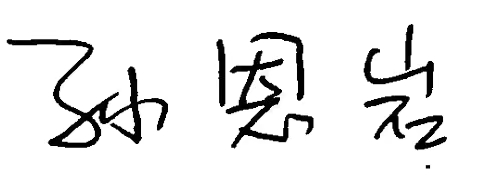 孙恩岩